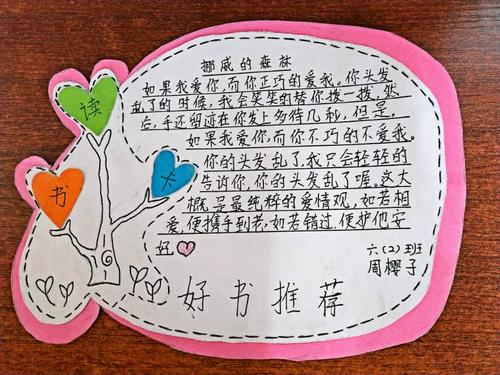 挪威的森林
如果我爱你,而你正巧的爱我。你头发
乱了的时候,我会笑笑的替你拨一拨,然
后,手还留迹在你发上多待几秒,但是,
如果我爱你,而你不巧的不爱我。
你的头发乱了,我只会轻轻的
告诉你,你的头发乱了喔。这大
概是最纯粹的爱情观,如若相
爱,便携手到老,如若错过,便护他安
好
六(2)班
周樱子
好书推荐
读
书
卡